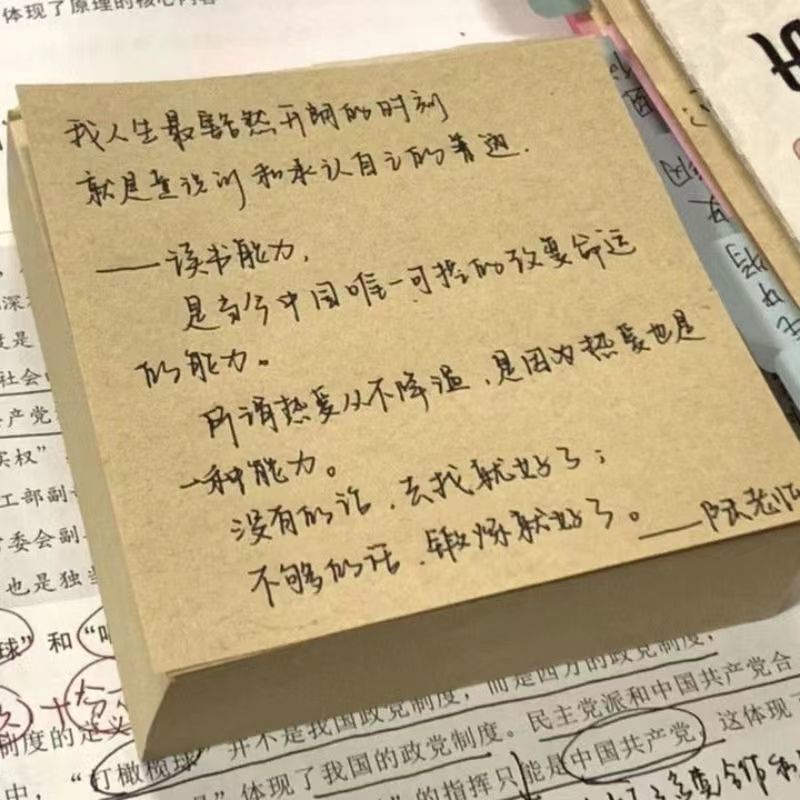 体现了原理的核心内容
我人生最豁然开朗的时刻
就是意识到和承认自己的普通.
——读书能力,
是当今中国唯一可控的改变命运
的能力。
所谓热爱从不降温,是因为热爱也是
一种能力。
没有的话,去找就好了;
不够的话,锻炼就好了。——陈老师
度是
社会
共产党
实权”
工部副
常委会副
也是独
球”和“
制度的定义
并不是我国政党制度,而是西方的政党制度,
中,“打橄榄球”体现了我国的政党制度。民主党派和中国共产党合
的指挥只能是中国共产党,这体现了